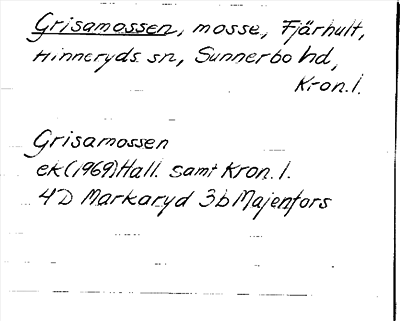 Grisamossen, mosse, Fjärhult,
Hinneryds sn, Sunnerbo hd,
Kron.l.
Grisamossen
ek(1969)Hall. samt Kron.l.
4D Markaryd 3b Majenfors